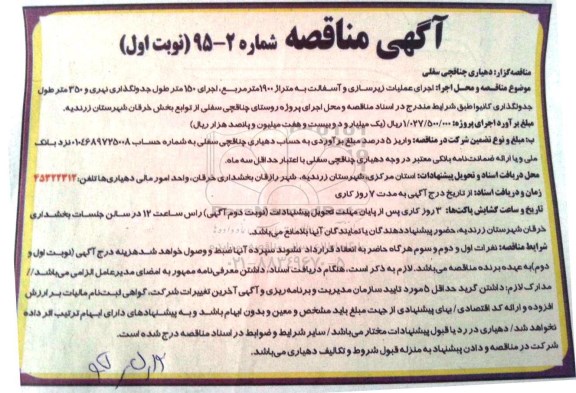 آگهی مناقصه شماره ۲-۹۵ (نوبت اول)
مناقصه‌گزار: دهیاری چناقچی سفلی
موضوع مناقصه و محل اجرا: اجرای عملیات زیرسازی و آسفالت به متراژ ۱۹۰۰ مترمربع، اجرای ۱۵۰ متر طول جدولگذاری نهری و ۳۵۰ متر طول
جدولگذاری کانیوا طبق شرایط مندرج در اسناد مناقصه و محل اجرای پروژه روستای چناقچی سفلی از توابع بخش خرقان شهرستان زرندیه.
مبلغ برآورد اجرای پروژه: ۱/۰۲۷/۵۰۰/۰۰۰ ریال (یک میلیارد و بیست و هفت میلیون و پانصد هزار ریال)
مبلغ و نوع تضمین شرکت در مناقصه: واریز ۵ درصد مبلغ برآوردی به حساب دهیاری چناقچی سفلی به شماره حساب ۰۱۰۲۶۸۹۷۲۵۰۰۸ نزد بانک
ملی و یا ارائه ضمانت‌نامه بانکی معتبر در وجه دهیاری چناقچی سفلی با اعتبار حداقل سه ماه.
محل دریافت اسناد و تحویل پیشنهادات: استان مرکزی، شهرستان زرندیه، شهر رازقان بخشداری خرقان، واحد امور مالی دهیاری‌ها تلفن: ۴۵۳۲۲۳۱۲
زمان و دریافت اسناد: از تاریخ درج آگهی به مدت ۷ روز کاری
تاریخ و ساعت گشایش پاکت‌ها: ۳ روز کاری پس از پایان مهلت تحویل پیشنهادات (نوبت دوم آگهی) راس ساعت ۱۲ در سالن جلسات بخشداری
خرقان شهرستان زرندیه، حضور پیشنهاددهندگان یا نمایندگان آنها بلامانع می‌باشد.
شرایط مناقصه: نفرات اول و دوم و سوم هرگاه حاضر به انعقاد قرارداد نشوند سپرده آنها ضبط و وصول خواهد شد هزینه درج آگهی (نوبت اول و
دوم) به عهده برنده مناقصه می‌باشد. لازم به ذکر است، هنگام دریافت اسناد، داشتن معرفی‌نامه ممهور به امضای مدیرعامل الزامی می‌باشد.//
مدارک لازم: داشتن گرید حداقل ۵ مورد تایید سازمان مدیریت و برنامه‌ریزی و آگهی آخرین تغییرات شرکت، گواهی ثبت‌نام مالیات بر ارزش
افزوده و ارائه کد اقتصادی/ بهای پیشنهادی از جهت مبلغ باید مشخص و معین و بدون ابهام باشد و به پیشنهادهای دارای ابهام ترتیب اثر داده
نخواهد شد/ دهیاری در رد یا قبول پیشنهادات مختار می‌باشد/ سایر شرایط و ضوابط در اسناد مناقصه درج شده است.
شرکت در مناقصه و دادن پیشنهاد به منزله قبول شروط و تکالیف دهیاری می‌باشد.